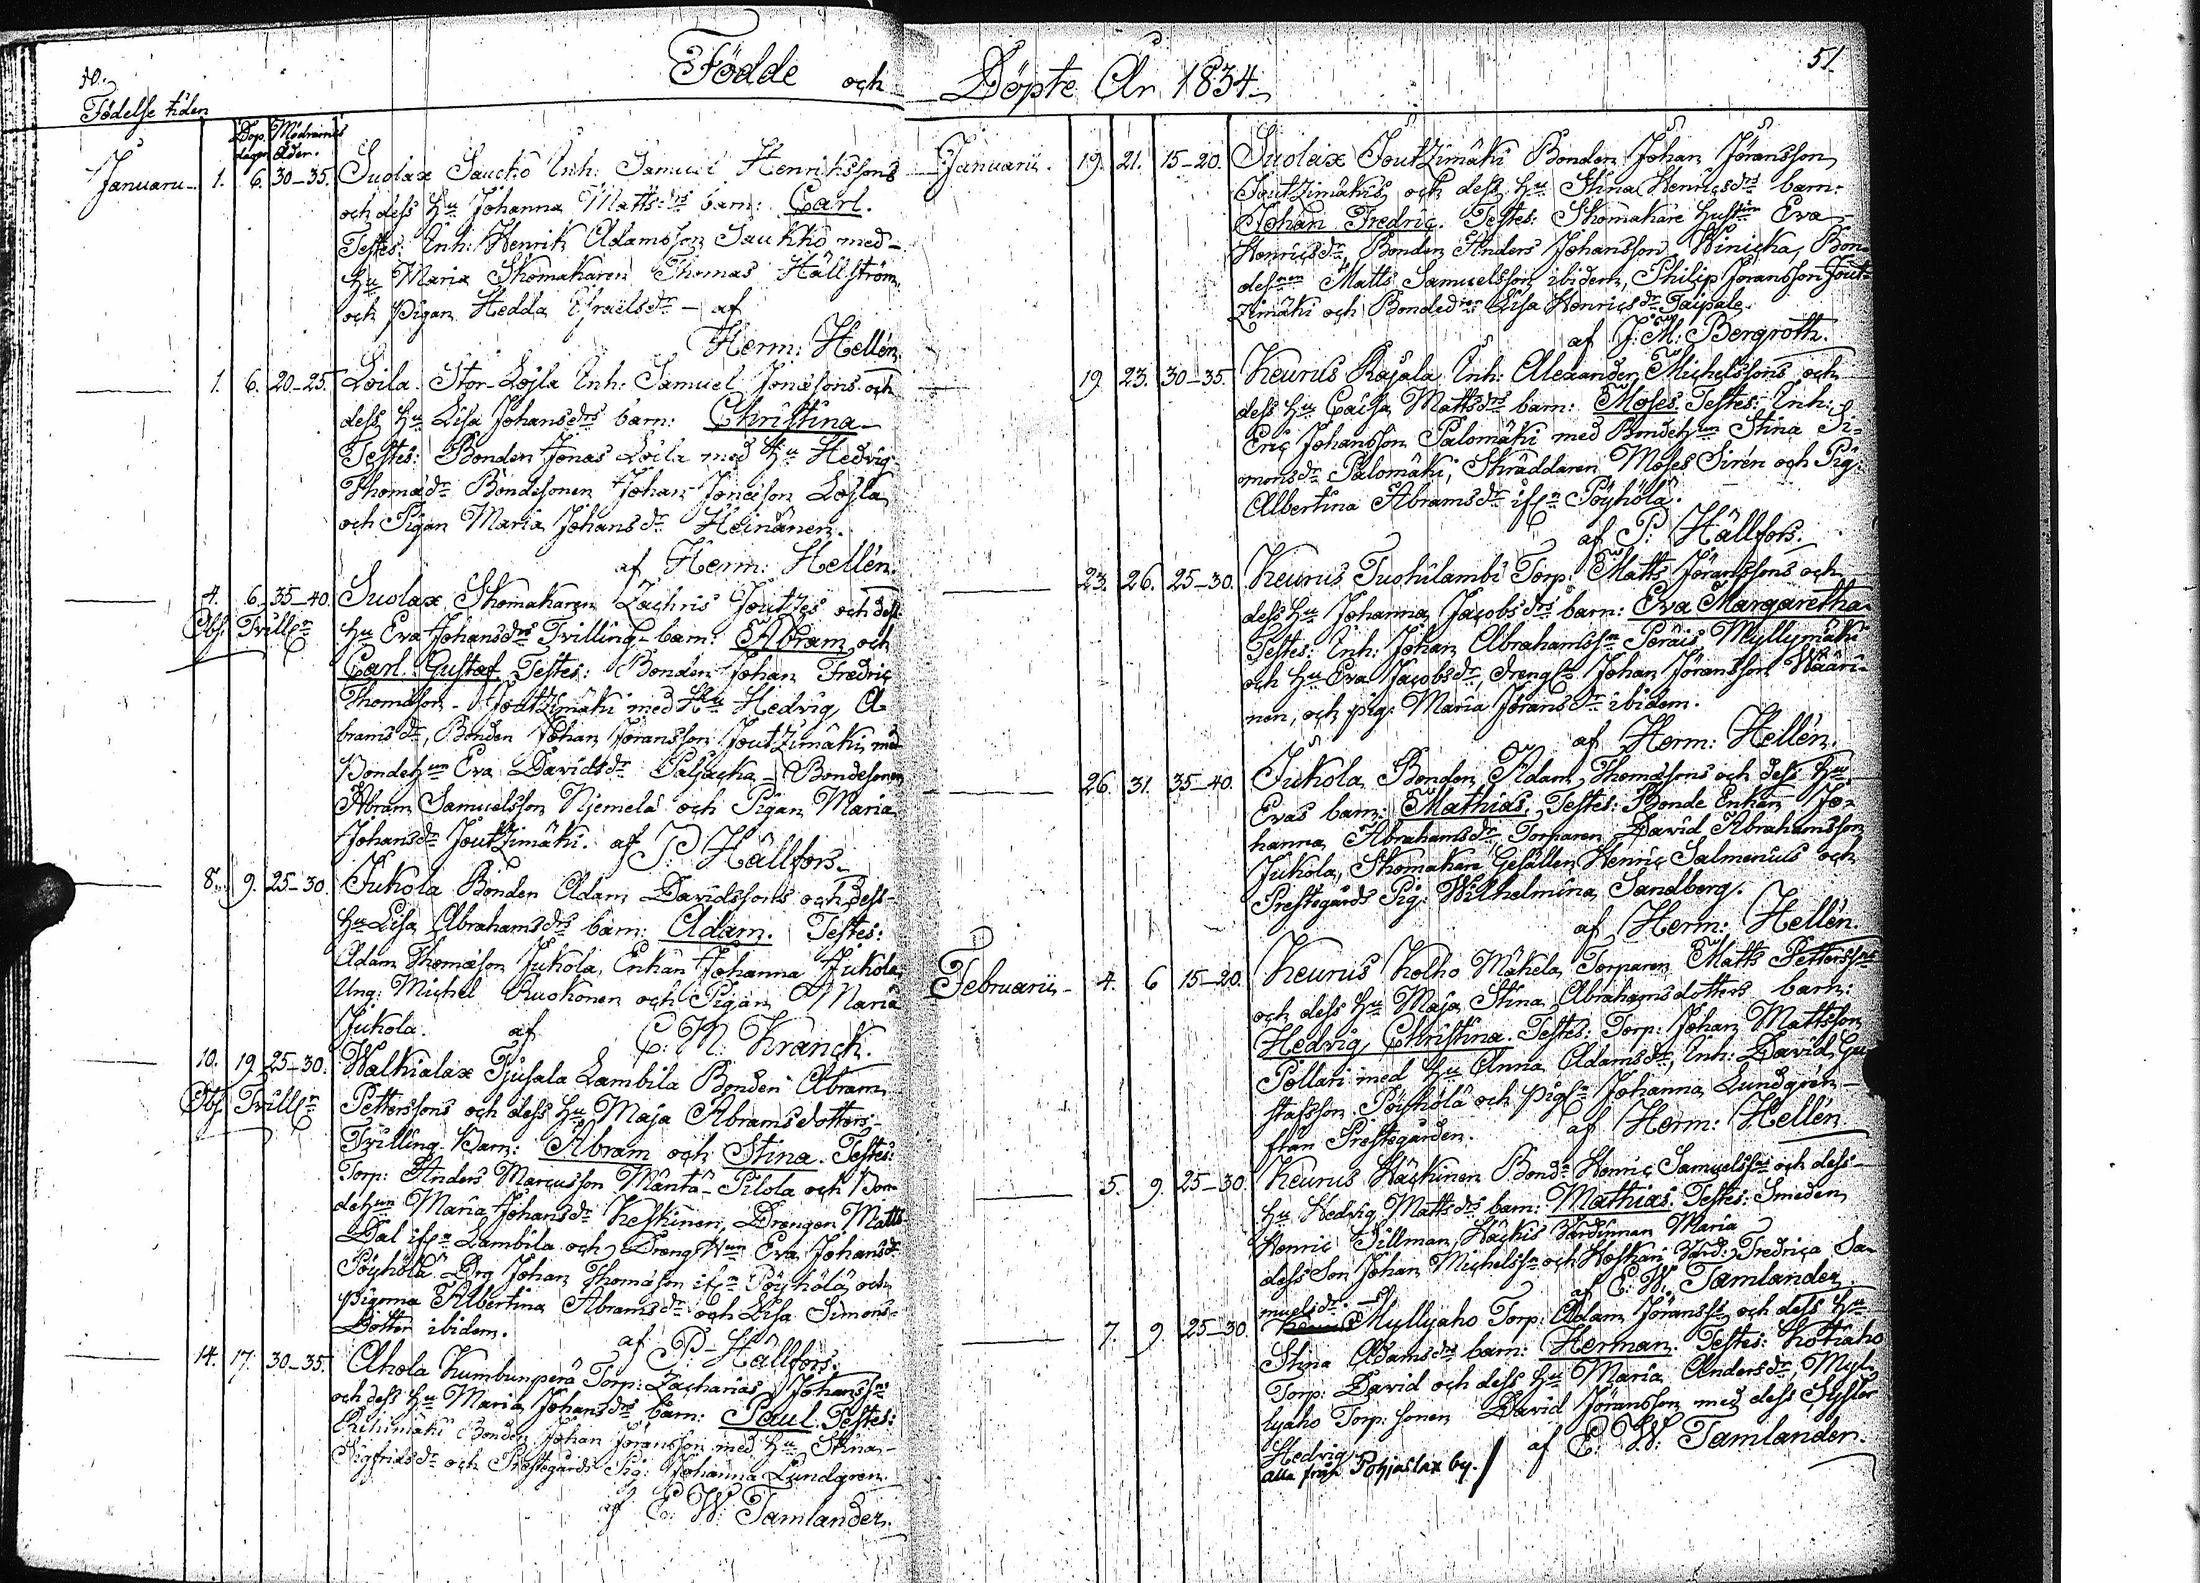 50.
Födde och
Födelse tiden
Dop. dagen
Modrernes Ålder.
Januarii 1. 6. 30-35. Suolax Saucko Inh: Samuel Henrikssons
och dess Hu Johanna Matts:drs barn: Carl.
Testes: Inh: Henrik Adamsson Saukko med
Hu Maria Skomakaren Thomas Hällström,
och Pigan Hedda Israelsdr - af
Herm: Hellén.
1. 6. 20-25. Loila Stor-Lojla Inh: Samuel Jonassons och
dess Hu Lisa Johansdrs barn: Christina
Testes: Bonden Jonas Loila med Hu Hedvig
Thomædr Bondesonen Johan Jonasson Lojla
och Pigan Maria Johansdr Heinänen.
af Herm: Hellén.
4. 6. 35-40. Suolax Skomakaren Zachris Joutzes och dess
Obs. Tvill:r Hu Eva Johansdrs Tvilling-barn: Abram och
Carl Gustaf. Testes: Bonden Johan Fredric
Thomasson Joutzimäki med Hu Hedvig A-
bramsdr, Bonden Johan Jöransson Joutzimäki med
Bondehun Eva Davidsdr Paljacka - Bondesonen
Abram Samuelsson Niemelä och Pigan Maria
Johansdr Joutzimäki. af P. Hällfors.
8. 9. 25-30. Jukola Bonden Adam Davidssons och dess
Hu Lisa Abrahamsdrs barn: Adam. Testes:
Adam Thomæson Jukola, Enkan Johanna Jukola,
Ung: Michel Ruokonen och Pigan Maria
Jukola. af C: M: Kranck.
10. 19. 25-30. Walkialax Tjusala Lambila Bonden Abram
Obs. Tvill:r Petterssons och dess Hu Maja Abramsdotters
Tvilling Barn: Abram och Stina. Testes:
Torp: Anders Marcusson Mänttä-Pilola och Bon-
dehun Maria Johansdr Keskinen, Drengen Matts
Dal ifrn Lambila och Dreng Hun Eva Johansdr
Pöyhölä Drg Johan Thomasson ifrn Pöyhölä och
pigorna Albertina Abramsdr och Lisa Simons-
Dotter ibidem. af P. Hällfors.
14. 17. 30-35. Ahola Kumbunperä Torp: Zacharias Johanssns
och dess Hu Maria Johansdrs barn: Paul. Testes:
Riihimäki Bonden Johan Jöransson med Hu Stina
Sigfridsdr och Prestegårds Pig: Johanna Lundgren.
af E: W: Tamlander.
51.
Döpte År 1834.
Januarii. 19. 21. 15-20. Suolax Joutzimäki Bonden Johan Jöransson
Joutzimäkis och dess Hu Stina Henricsdrs barn:
Johan Fredric. Testes: Skomakare Hustrun Eva
Henricsdr, Bonden Anders Johansson Winicka, Bon-
desonen Matts Samuelsson ibidem, Philip Jöransson Jout-
zimäki och Bondedrn Lisa Henricsdr Taipale.
af J: M: Bergroth.
19. 23. 30-35. Keurus Rajala Inh: Alexander Michelssons och
dess Hu Caisa Mattsdrs barn: Moses. Testes: Inh:
Eric Johansson Palomäki med Bondehun Stina Si-
monsdr Palomäki, Skräddaren Moses Sirén och Pig:
Albertina Abramsdr ifrn Pöyhölä.
af P: Hällfors.
23. 26. 25-30. Keurus Tuohilambi Torp: Matts Jöranssons och
dess Hu Johanna Jacobsdrs barn: Eva Margaretha.
Testes: Inh: Johan Abrahamssn Peräis Myllymäki
och Hu Eva Jacobsdr, drengen Johan Jöransson Wääri-
nen, och pig: Maria Jöransdr ibidem.
af Herm: Hellén.
26. 31. 35-40. Jukola Bonden Adam Thomæsons och dess Hu
Evas barn: Mathias. Testes: Bonde Enkan Jo-
hanna Abrahamsdr Torparen David Abrahamsson
Jukola, Skomakare Gesällen Henric Salmenius och
Prestegårds Pig: Wilhelmina Sandberg.
af Herm: Hellén.
Februarii 4. 6 15-20. Keurus Kolho Mäkelä Torparen Matts Petterssons
och dess Hu Maja Stina Abrahamsdotters barn:
Hedvig Christina. Testes: Torp: Johan Mattsson
Pollari med Hu Anna Adamsdr, Inh: David Gu-
stafsson Pöyhölä och pign Johanna Lundgrén
från Prestegården. af Herm: Hellén
5. 9. 25-30 Keurus Häckinen Bondn Henric Samuelssns och dess
Hu Hedvig Mattsdrs barn: Mathias. Testes: Smeden
Henric Tillman, Häckis Värdinnan Maria
dess Son Johan Michelssn och Hoskari Värd: Fredrica Sa-
muelsdr. af E. W: Tamlander.
7. 9. 25-30. Myllyaho Torp: Adam Jöransss och dess Hu
Stina Adamsdrs barn: Herman. Testes: Kotiaho
Torp: David och dess Hu Maria Andersdr, Myl-
lyaho Torp: sonen David Jöransson med dess Syster
Hedvig. af E: W: Tamlander.
alla från Pohjaslax by.